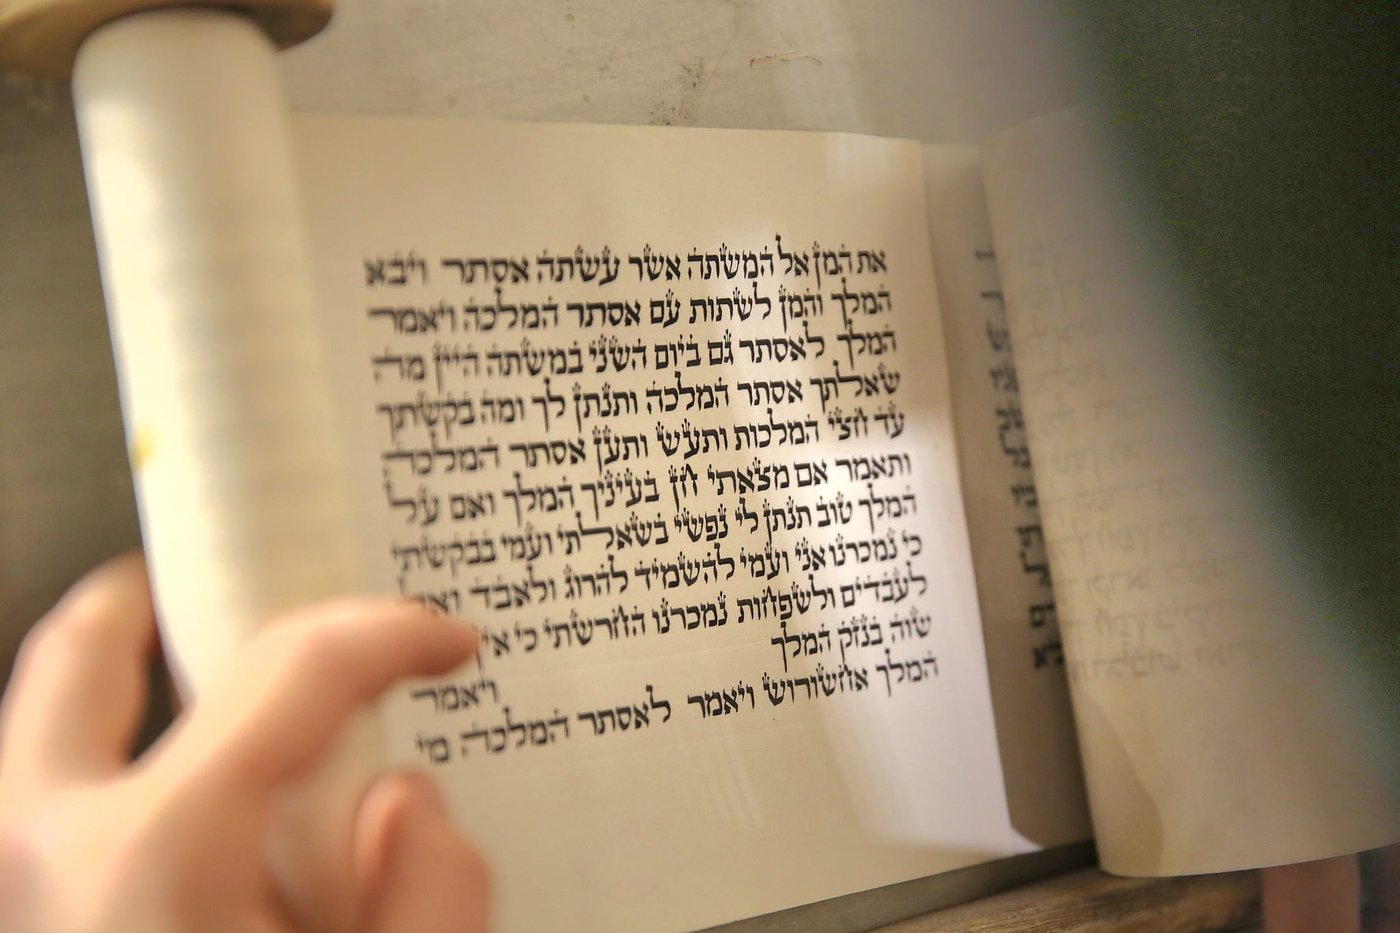 את המן אל המשתה אשר עשתה אסתר ויבא
המלך והמן לשתות עם אסתר המלכה ויאמר
המלך לאסתר גם ביום השני במשתה היין מה
שאלתך אסתר המלכה ותנתן לך ומה בקשתך
עד חצי המלכות ותעש ותען אסתר המלכה
ותאמר אם מצאתי חן בעיניך המלך ואם על
המלך טוב תנתן לי נפשי בשאלתי ועמי בבקשתי
כי נמכרנו אני ועמי להשמיד להרוג ולאבד
לעבדים ולשפחות נמכרנו החרשתי כי
שוה בנזק המלך
ויאמר
המלך אחשורוש ויאמר לאסתר המלכה מי